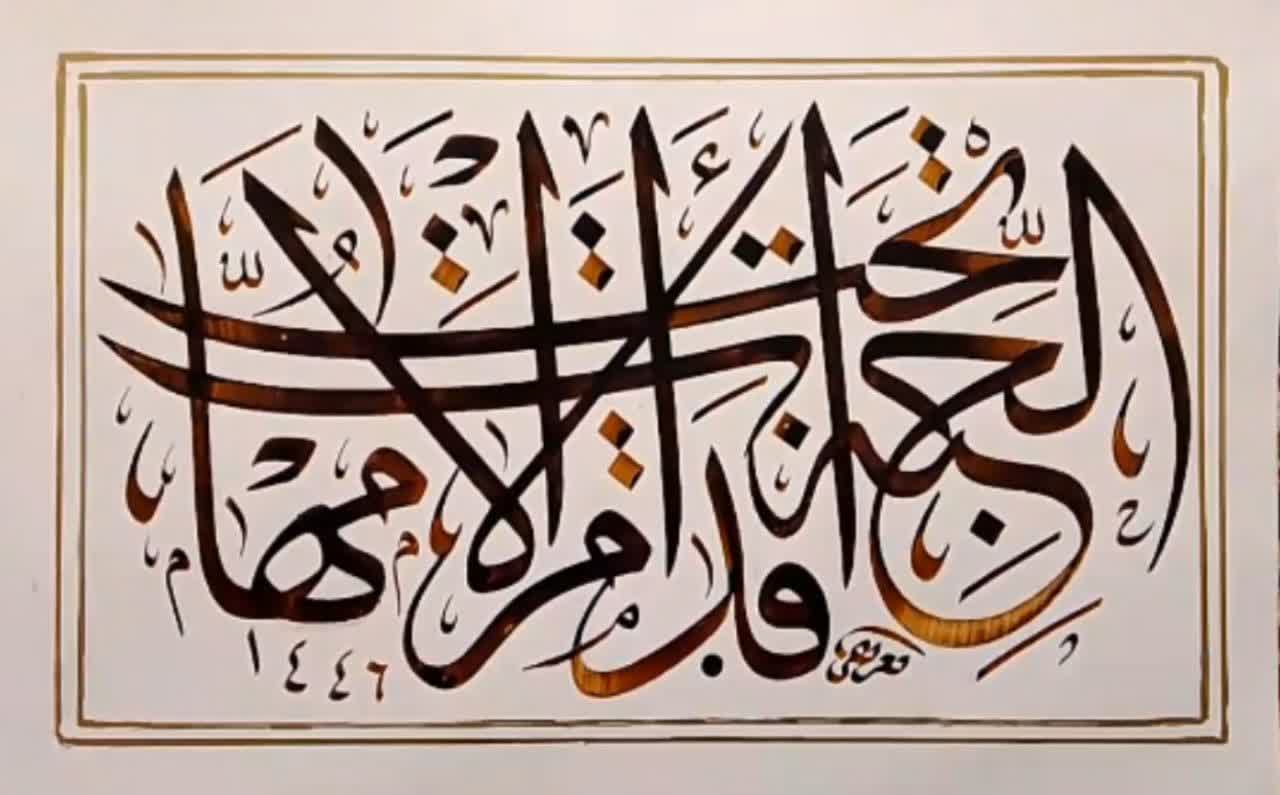 الجنة تحت أقدام الأمهات
١٤٤٦